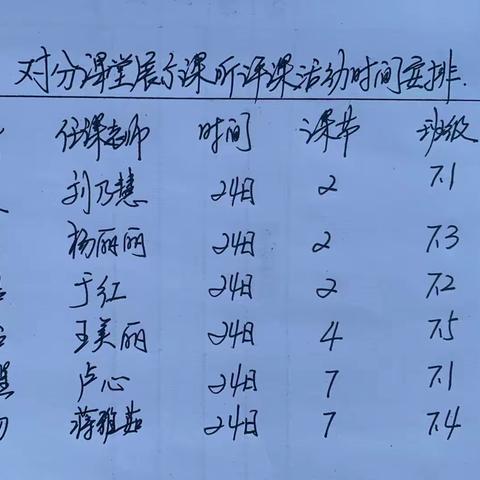 对分课堂展示课听评课活动时间安排.
任课老师 时间 课节 班级
刘乃慧 24日 2 7.1
杨丽丽 24日 2 7.3
于红 24日 2 7.2
王美丽 24日 4 7.5
卢心 24日 7 7.1
蒋雅茹 24日 7 7.4